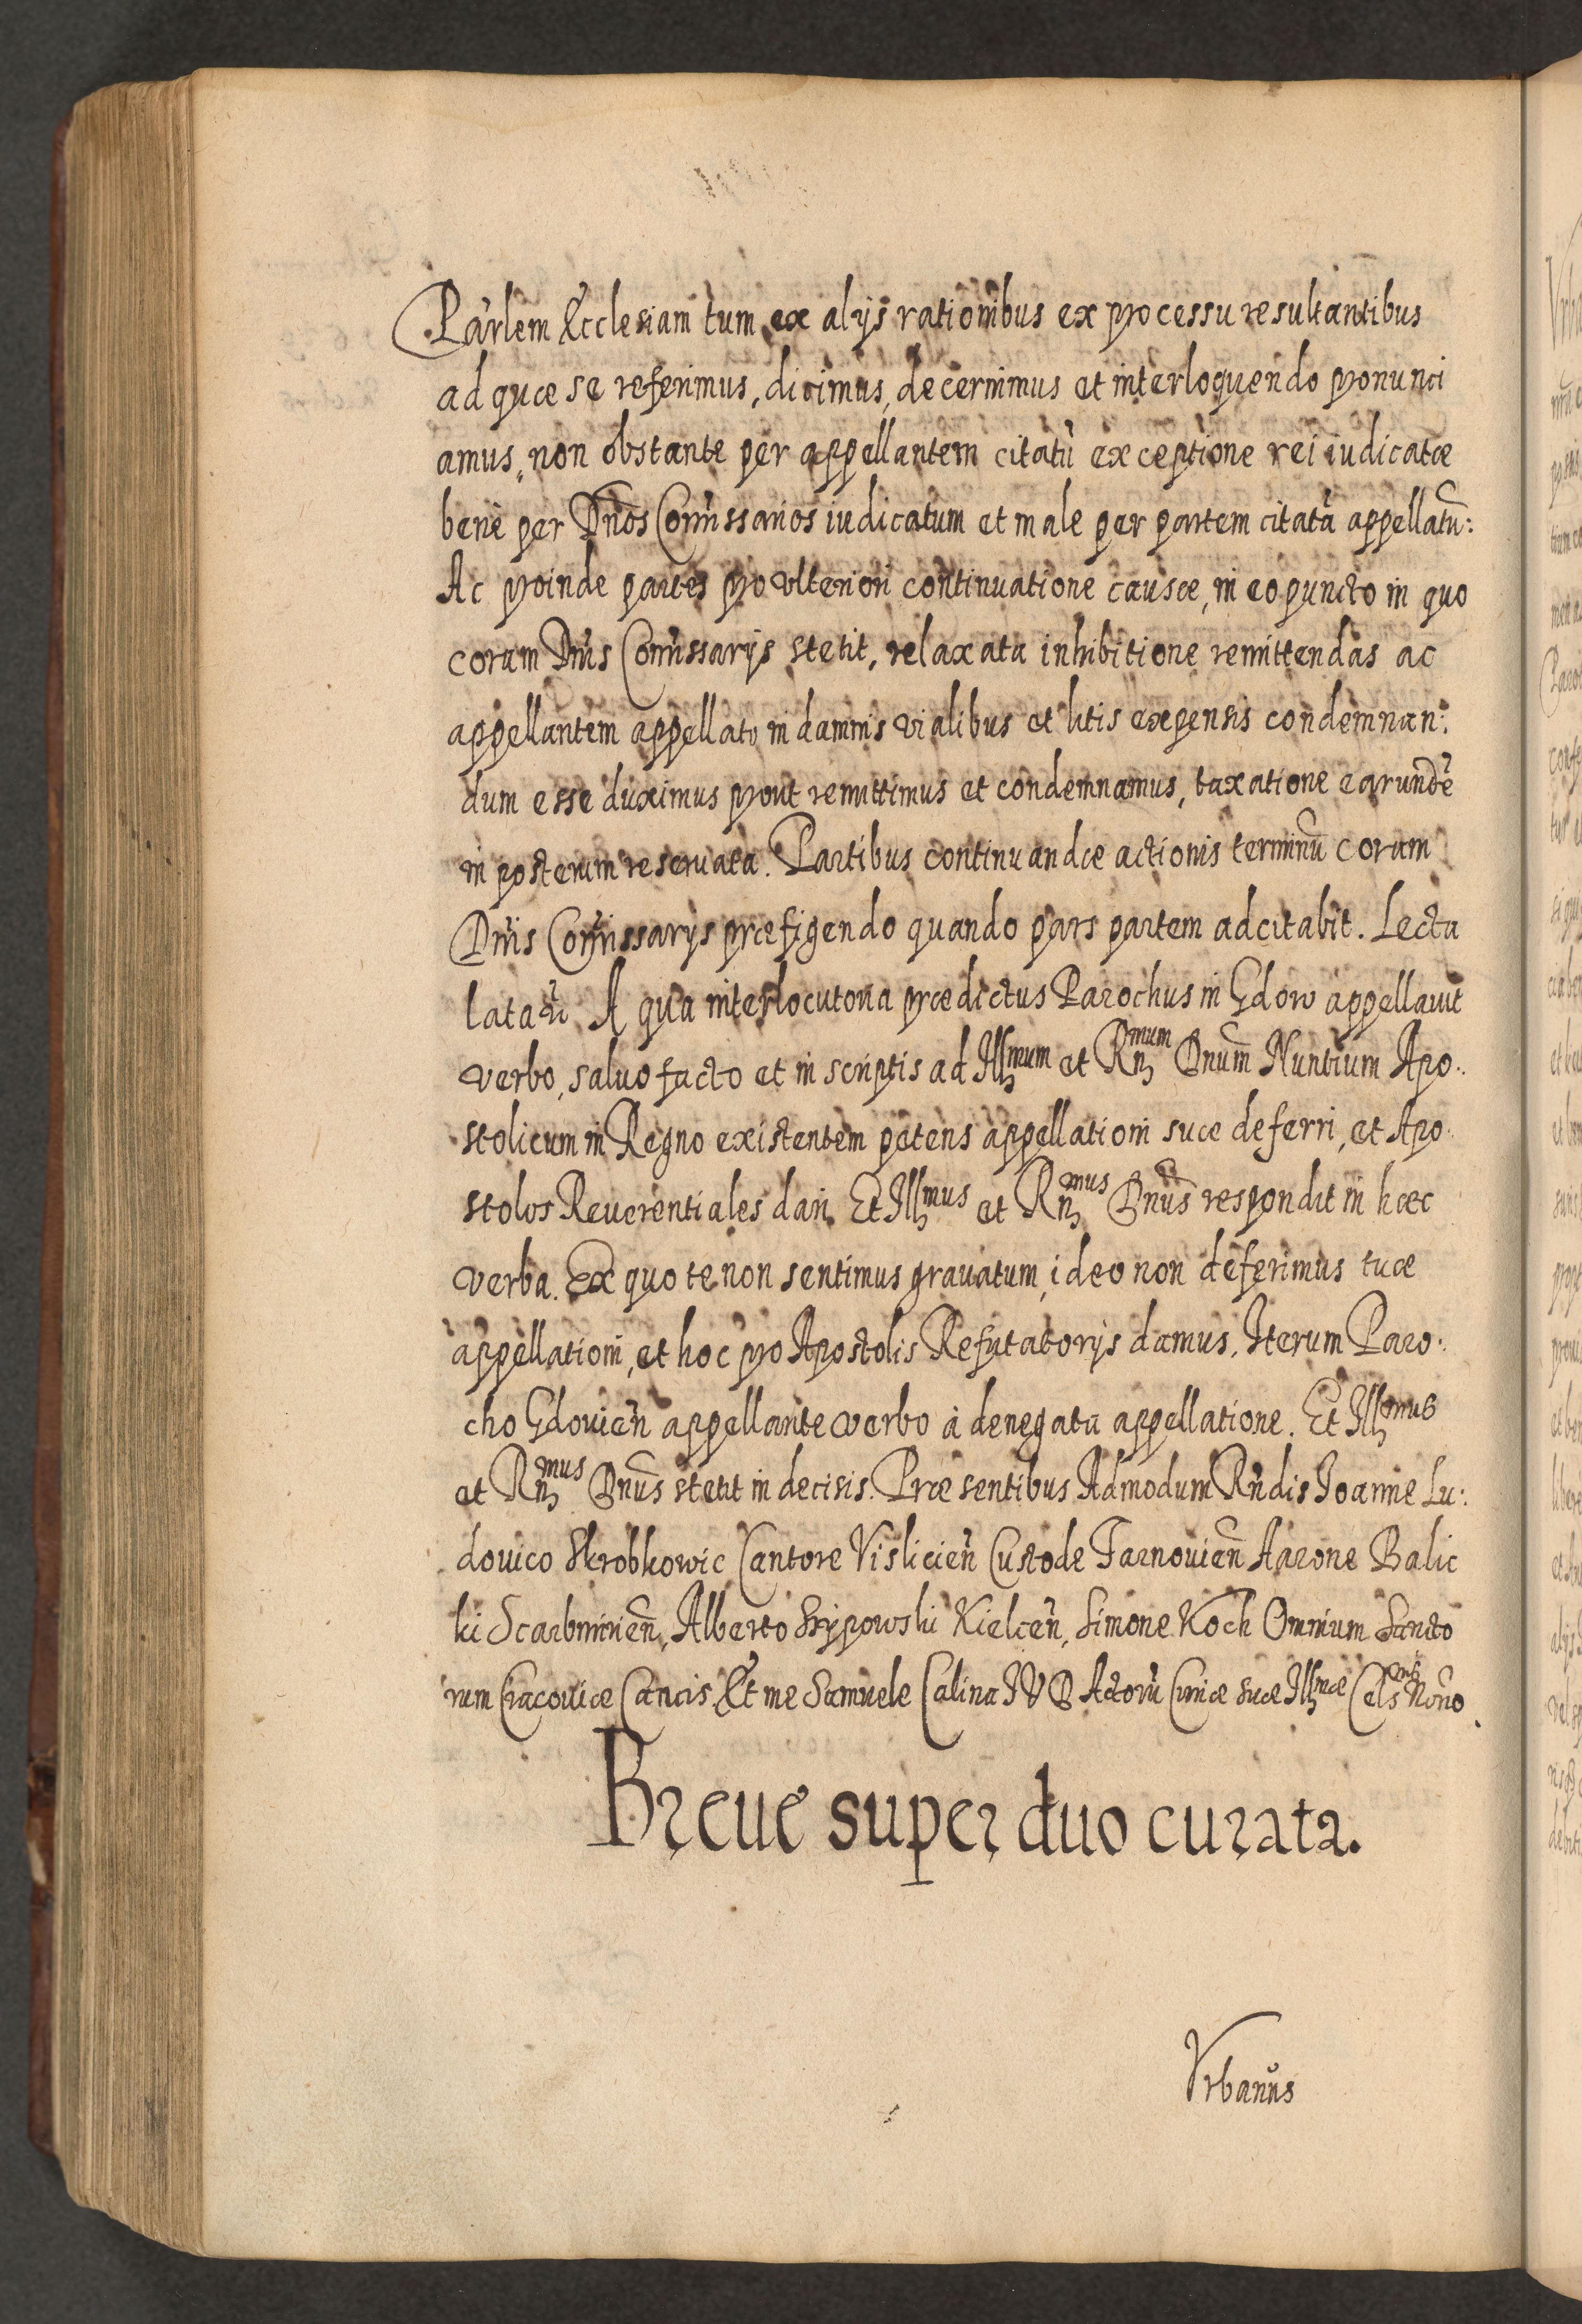 Parlem Ecclesiam tum ex alijs rationibus ex processu resultantibus
ad quæ se referimus, dicimus, decernimus et interloquendo pronunci
amus, non obstante per appellantem citatũ exceptione rei iudicatæ
benè per Dños Com̃issarios iudicatum et male per partem citatã appellatũ:
Ac proinde partes pro vlteriori continuatione causæ, in eo puncto in quo
coram Dnis Com̃issarijs stetit, relaxata inhibitione remittendas ac
appellantem appellato in damnis vialibus et litis expensis condemnan:
dum esse duximus prout remittimus et condemnamus, taxatione earundẽ
in posterum reseruata. Partibus continuandæ actionis terminũ coram
Dnis Com̃issarijs præfigendo quando pars partem adcitabit. Lecta
lata &c. A qua interlocutoria prædictus Parochus in Gdow appellauit
verbo, saluo facto et in scriptis ad Illmum et Rnmum Dnum Nuntium Apo:
stolicum in Regno existentem petens appellationi suæ deferri, et Apo:
stolos Reuerentiales dari. Et Illmus et Rnmus Dnus respondit in hæc
verba. Ex quo te non sentimus grauatum, ideo non deferimus tuæ
appellationi, et hoc pro Apostolis Refutatorijs damus. Iterum Paro:
cho Gdouień appellante verbo à denegata appellatione. Et Illmus
et Rnmus Dnus stetit in decisis. Præsentibus Admodum Rñdis Joanne Lu:
douico Skrobkowic Cantore Vislicień Custode Tarnouień Aarone Balic
ki Scarbimirień, Alberto Szypowski Kielceń, Simone Koch Omnium Sancto
rum Cracouiæ Cancis Et me Samuele Calina IVD Actorũ Curiæ suæ Illmæ Celsnis Norio.
Breue super duo curata.
Vrbanus